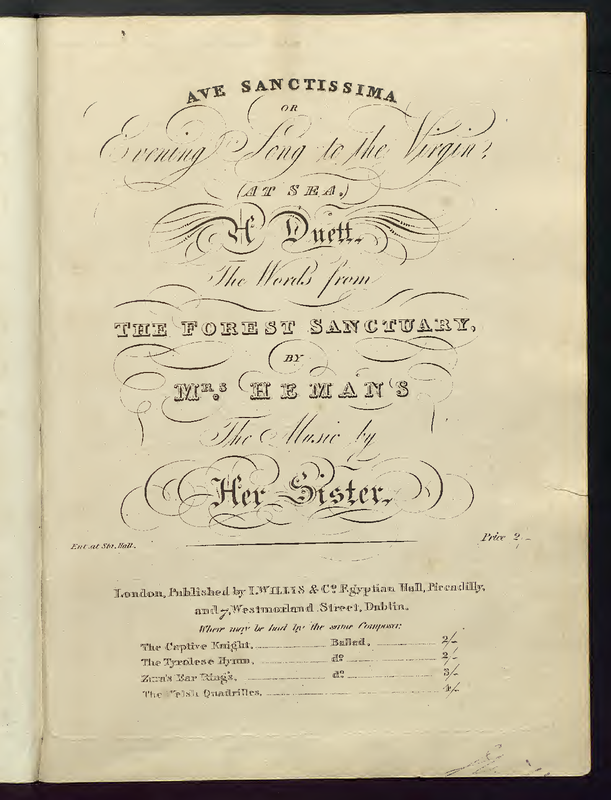 AVE SANCTISSIMA
OR
Evening Song to the Virgin,
(AT SEA,)
A Duett,
The Words from
THE FOREST SANCTUARY,
BY
MRS. HEMANS
The Music by
Her Sister.
Ent. at Sta. Hall. Price 2/-
London, Published by I. WILLIS & Co. Egyptian Hall, Piccadilly,
and 7, Westmorland Street, Dublin.
Where may be had by the same Composer:
The Captive Knight, Ballad, 2/-
The Tyrolese Hymn, do. 2/-
Zara's Ear Rings, do. 3/-
The Welsh Quadrilles, 4/-